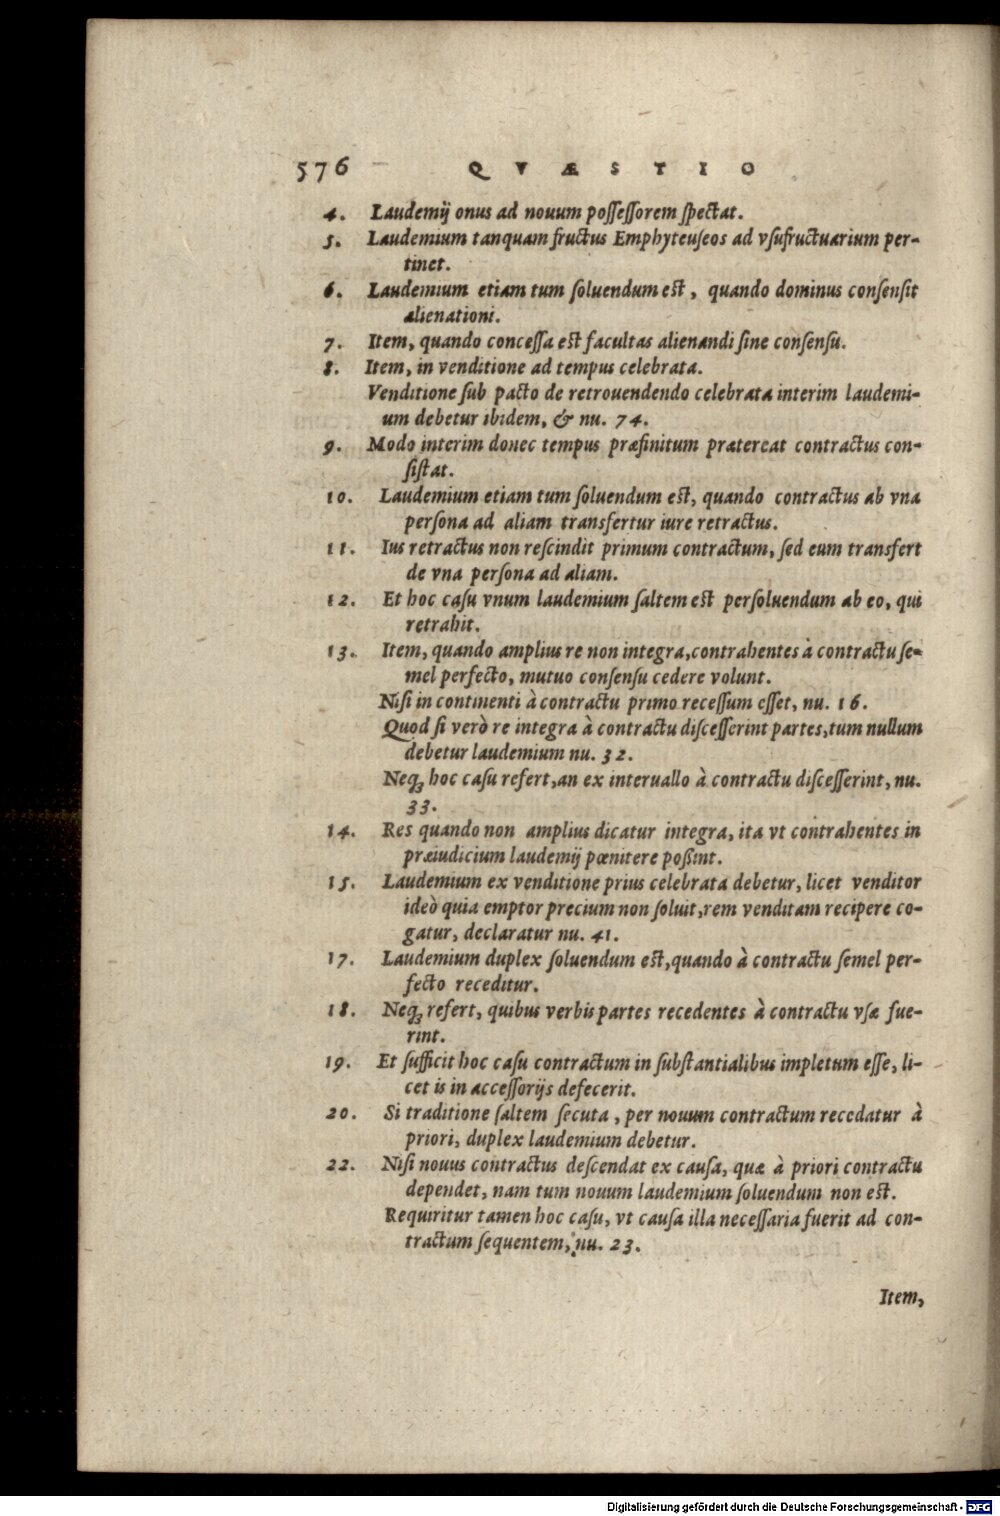 576 QVÆSTIO
4. Laudemij onus ad nouum poſſeſſorem ſpectat.
5. Laudemium tanquam fructus Emphyteuſeos ad vſufructuarium per-
tinet.
6. Laudemium etiam tum ſoluendum est, quando dominus conſenſit
alienationi.
7. Item, quando conceſſa est facultas alienandi ſine conſenſu.
8. Item, in venditione ad tempus celebrata.
Venditione ſub pacto de retrouendendo celebrata interim laudemi-
um debetur ibidem, & nu. 74.
9. Modo interim donec tempus præfinitum prætereat contractus con-
ſiſtat.
10. Laudemium etiam tum ſoluendum est, quando contractus ab vna
perſona ad aliam transfertur iure retractus.
11. Ius retractus non reſcindit primum contractum, ſed eum transfert
de vna perſona ad aliam.
12. Et hoc caſu vnum laudemium ſaltem est perſoluendum ab eo, qui
retrahit.
13. Item, quando amplius re non integra, contrahentes à contractu ſe-
mel perfecto, mutuo conſenſu cedere volunt.
Niſi in continenti à contractu primo receſſum eſſet, nu. 16.
Quod ſi verò re integra à contractu diſceſſerint partes, tum nullum
debetur laudemium nu. 32.
Neq₃ hoc caſu refert, an ex interuallo à contractu diſceſſerint, nu.
33.
14. Res quando non amplius dicatur integra, ita vt contrahentes in
præiudicium laudemij pœnitere poßint.
15. Laudemium ex venditione prius celebrata debetur, licet venditor
ideò quia emptor precium non ſoluit, rem venditam recipere co-
gatur, declaratur nu. 41.
17. Laudemium duplex ſoluendum est, quando à contractu ſemel per-
fecto receditur.
18. Neq₃ refert, quibus verbis partes recedentes à contractu vſæ fue-
rint.
19. Et ſufficit hoc caſu contractum in ſubſtantialibus impletum eſſe, li-
cet is in acceſſorijs defecerit.
20. Si traditione ſaltem ſecuta, per nouum contractum recedatur à
priori, duplex laudemium debetur.
22. Niſi nouus contractus deſcendat ex cauſa, quæ à priori contractu
dependet, nam tum nouum laudemium ſoluendum non est.
Requiritur tamen hoc caſu, vt cauſa illa neceſſaria fuerit ad con-
tractum ſequentem, nu. 23.
Item,
Digitalisierung gefördert durch die Deutsche Forschungsgemeinschaft - DFG